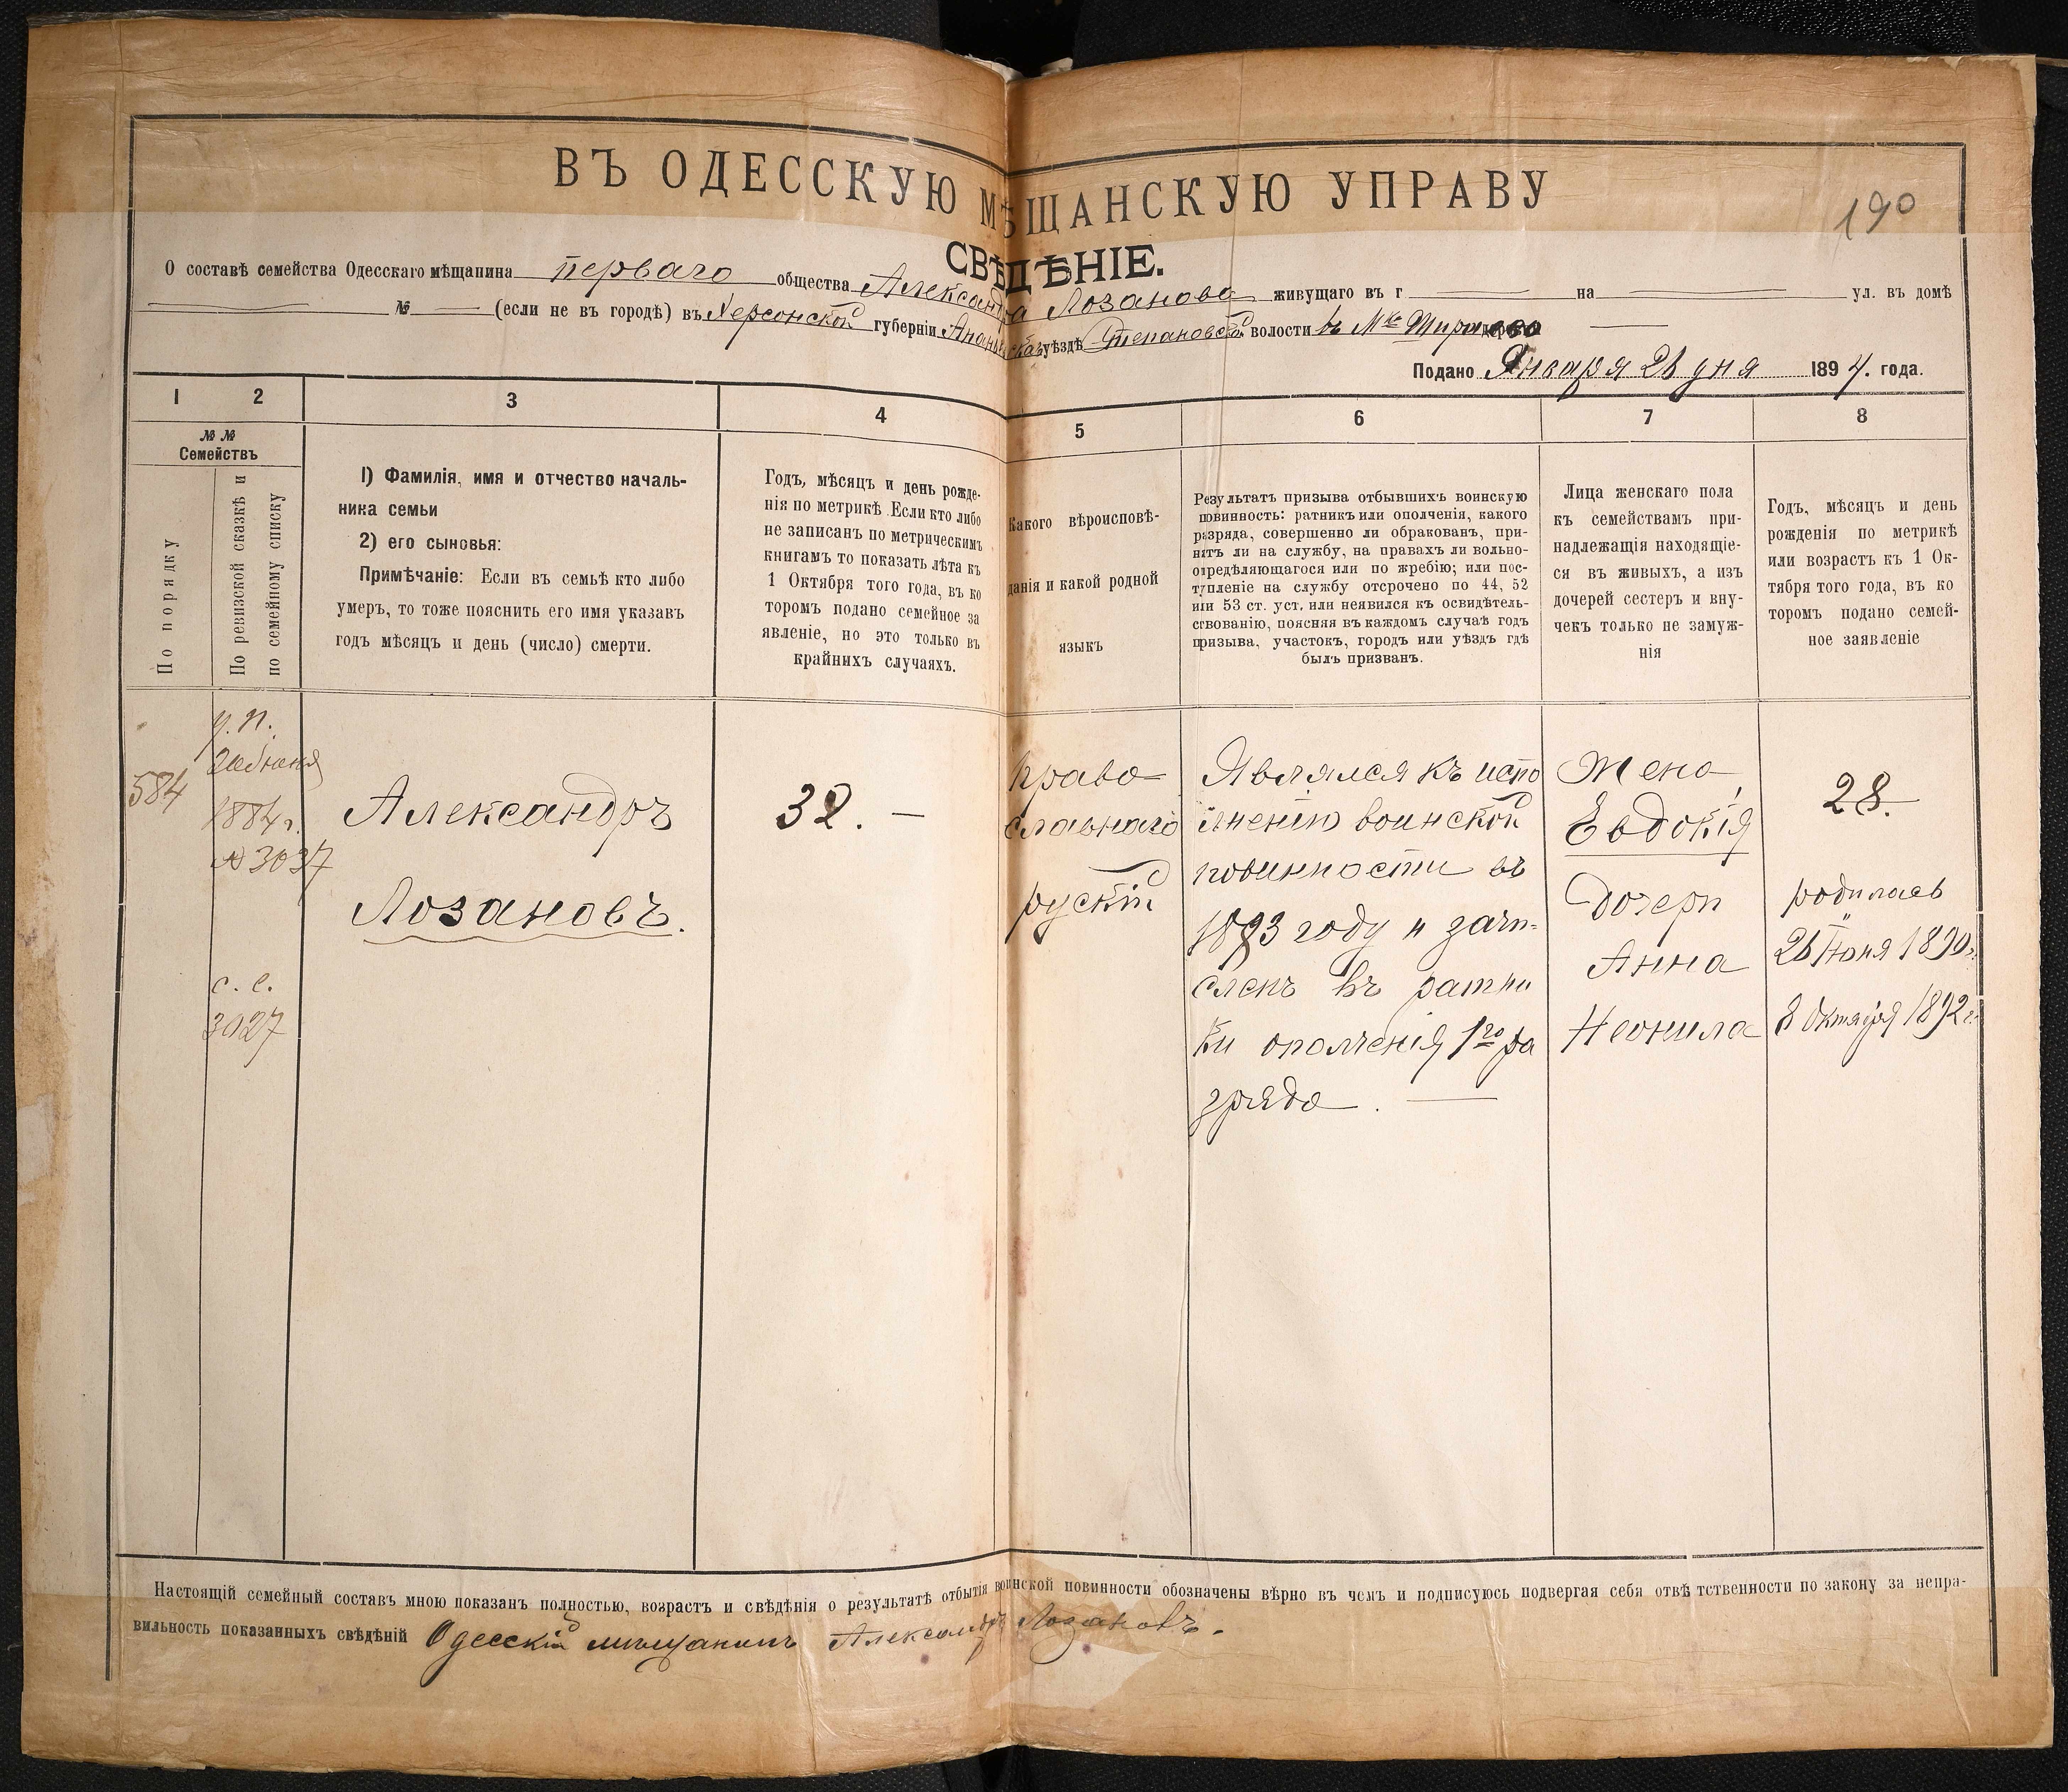 ВЪ ОДЕССКУЮ МѢЩАНСКУЮ УПРАВУ
190
СВѢДѢНІЕ.
О составѣ семейства Одесскаго мѣщанина перваго общества Александра Лозанова живущаго въ г на ул. въ домѣ
№ (если не въ городѣ) въ Херсонской губерніи уѣздѣ Степановской волости въ Мкѣ
Подано Января 26 дня 1894. года.
1 2 3 4 5 6 7 8
№ №
Семействъ
По порядку
По ревизской сказкѣ и
по семейному списку
1) Фамилія, имя и отчество началь-
ника семьи
2) его сыновья:
Примѣчаніе: Если въ семьѣ кто либо
умеръ, то тоже пояснить его имя указавъ
годъ мѣсяцъ и день (число) смерти.
Годъ, мѣсяцъ и день рожде-
нія по метрикѣ. Если кто либо
не записанъ по метрическимъ
книгамъ то показать лѣта къ
1 Октября того года, въ ко
торомъ подано семейное за
явленіе, но это только въ
крайнихъ случаяхъ.
Какого вѣроисповѣ-
данія и какой родной
языкъ
Результатъ призыва отбывшихъ воинскую
повинность: ратникъ или ополченія, какого
разряда, совершенно ли обракованъ, при-
нятъ ли на службу, на правахъ ли вольно-
опредѣляющагося или по жребію; или пос-
тупленіе на службу отсрочено по 44, 52
или 53 ст. уст. или неявился къ освидѣтель-
ствованію, поясняя въ каждомъ случаѣ годъ
призыва, участокъ, городъ или уѣздъ гдѣ
былъ призванъ.
Лица женскаго пола
къ семействамъ при-
надлежащія находящіе-
ся въ живыхъ, а изъ
дочерей сестеръ и вну-
чекъ только не замуж-
нія
Годъ, мѣсяцъ и день
рожденія по метрикѣ
или возрастъ къ 1 Ок-
тября того года, въ ко
торомъ подано семей-
ное заявленіе
584
1884 г.
№ 3037
с. с.
3027
Александръ
Лозановъ.
32. —
право
славнаго
рускій
Являлся къ испо
лненію воинской
повинности въ
1893 году и зачи-
сленъ въ ратни
ки ополченія 1го ра
зряда. —
Жена
Евдокія
Дочери
Анна
Неонила
28.
родилась
26 Іюня 1890 г.
8 Октября 1892 г.
Настоящій семейный составъ мною показанъ полностью, возрастъ и свѣдѣнія о результатѣ отбытія воинской повинности обозначены вѣрно въ чемъ и подписуюсь подвергая себя отвѣтственности по закону за непра-
вильность показанныхъ свѣдѣній Одесскій мѣщанинъ Александръ Лозановъ.